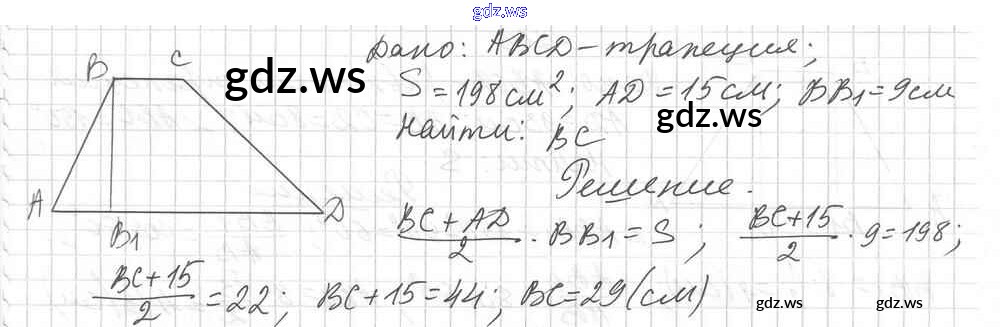 gdz.ws
Дано: ABCD - трапеция;
B C gdz.ws S = 198 см²; AD = 15 см; BB₁ = 9 см
gdz.ws
Найти: BC
Решение.
A B₁ D (BC + AD)/2 · BB₁ = S; (BC + 15)/2 · 9 = 198;
(BC + 15)/2 = 22; BC + 15 = 44; BC = 29 (см)
gdz.ws gdz.ws